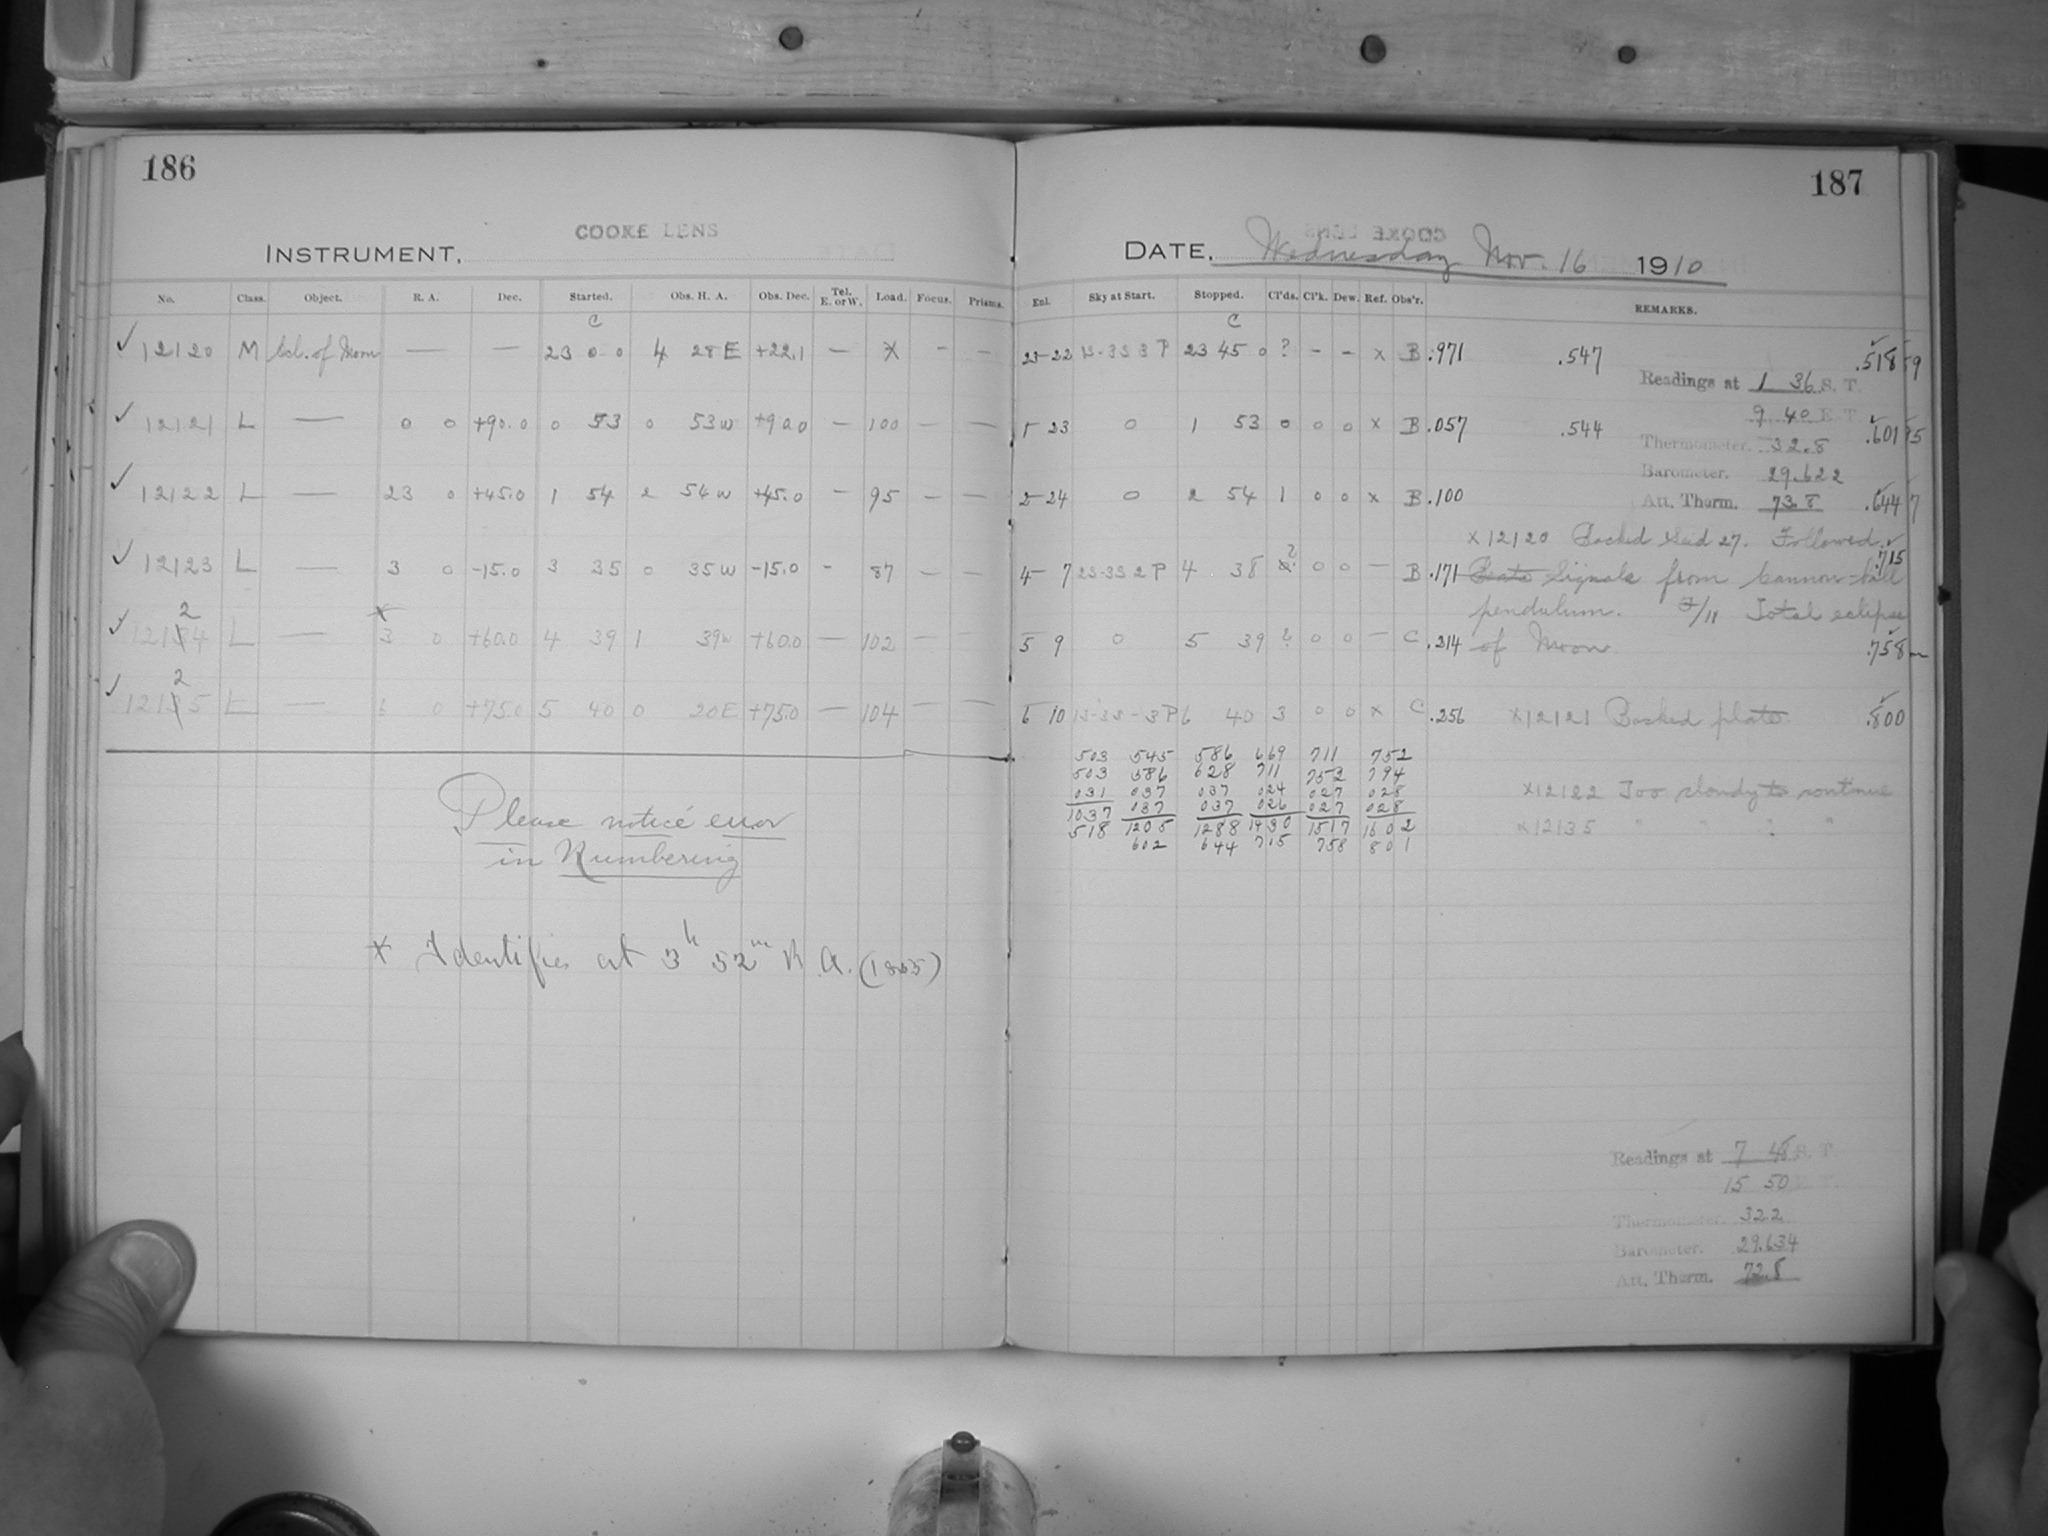 186
187
COOKE LENS
INSTRUMENT.
DATE. Wednesday Nov. 16 1910
No. Class. Object. R. A. Dec. Started. Obs. H. A. Obs. Dec. Tel. E. or W. Load. Focus. Prisms. Enl. Sky at Start. Stopped. Cl'ds. Cl'k. Dew. Ref. Obs'r. REMARKS.
C C
✓ 12120 M Ecl. of Moon — — 23 0 0 4 28 E +22.1 — X - — 23-22 23 45 0 ? - - x B .971 .547 .518
Readings at 1 36 S. T.
9 40 E. T.
✓ 12121 L — 0 0 +90.0 0 53 0 53 W +90.0 — 100 — — 1 23 0 1 53 0 0 0 x B .057 .544 .601
Thermometer. 32.8
Barometer. 29.622
✓ 12122 L — 23 0 +45.0 1 54 2 54 W +45.0 - 95 — — 2-24 0 2 54 1 0 0 x B .100 .644
Att. Therm. 73.8
x 12120 Backed Seed 27. Followed
✓ 12123 L — 3 0 -15.0 3 35 0 35 W -15.0 - 87 — — 4- 7 4 38 ? 0 0 — B .171 Signals from Cannon-ball .715
pendulum. Total eclipse
2 x
✓ 12134 L — 3 0 +60.0 4 39 1 39 W +60.0 — 102 — — 5 9 0 5 39 ? 0 0 — C .214 of Moon .758
2
✓ 12135 L — 6 0 +75.0 5 40 0 20 E +75.0 — 104 — — 6 10 6 40 3 0 0 x C .256 x12121 Backed plate. .800
503 545 586 669 711 752
503 586 628 711 752 794
031 037 037 024 027 028
037 037 026 027 028
1037 1205 1288 1430 1517 1602
518 602 644 715 758 801
x12122 Too cloudy to continue
x12135 " " ? "
Please notice error
in Numbering
x Identifies at 3h 52m R. A. (1855)
Readings at 7 48 S. T.
15 50 E. T.
Thermometer. 32.2
Barometer. 29.634
Att. Therm. 72.8